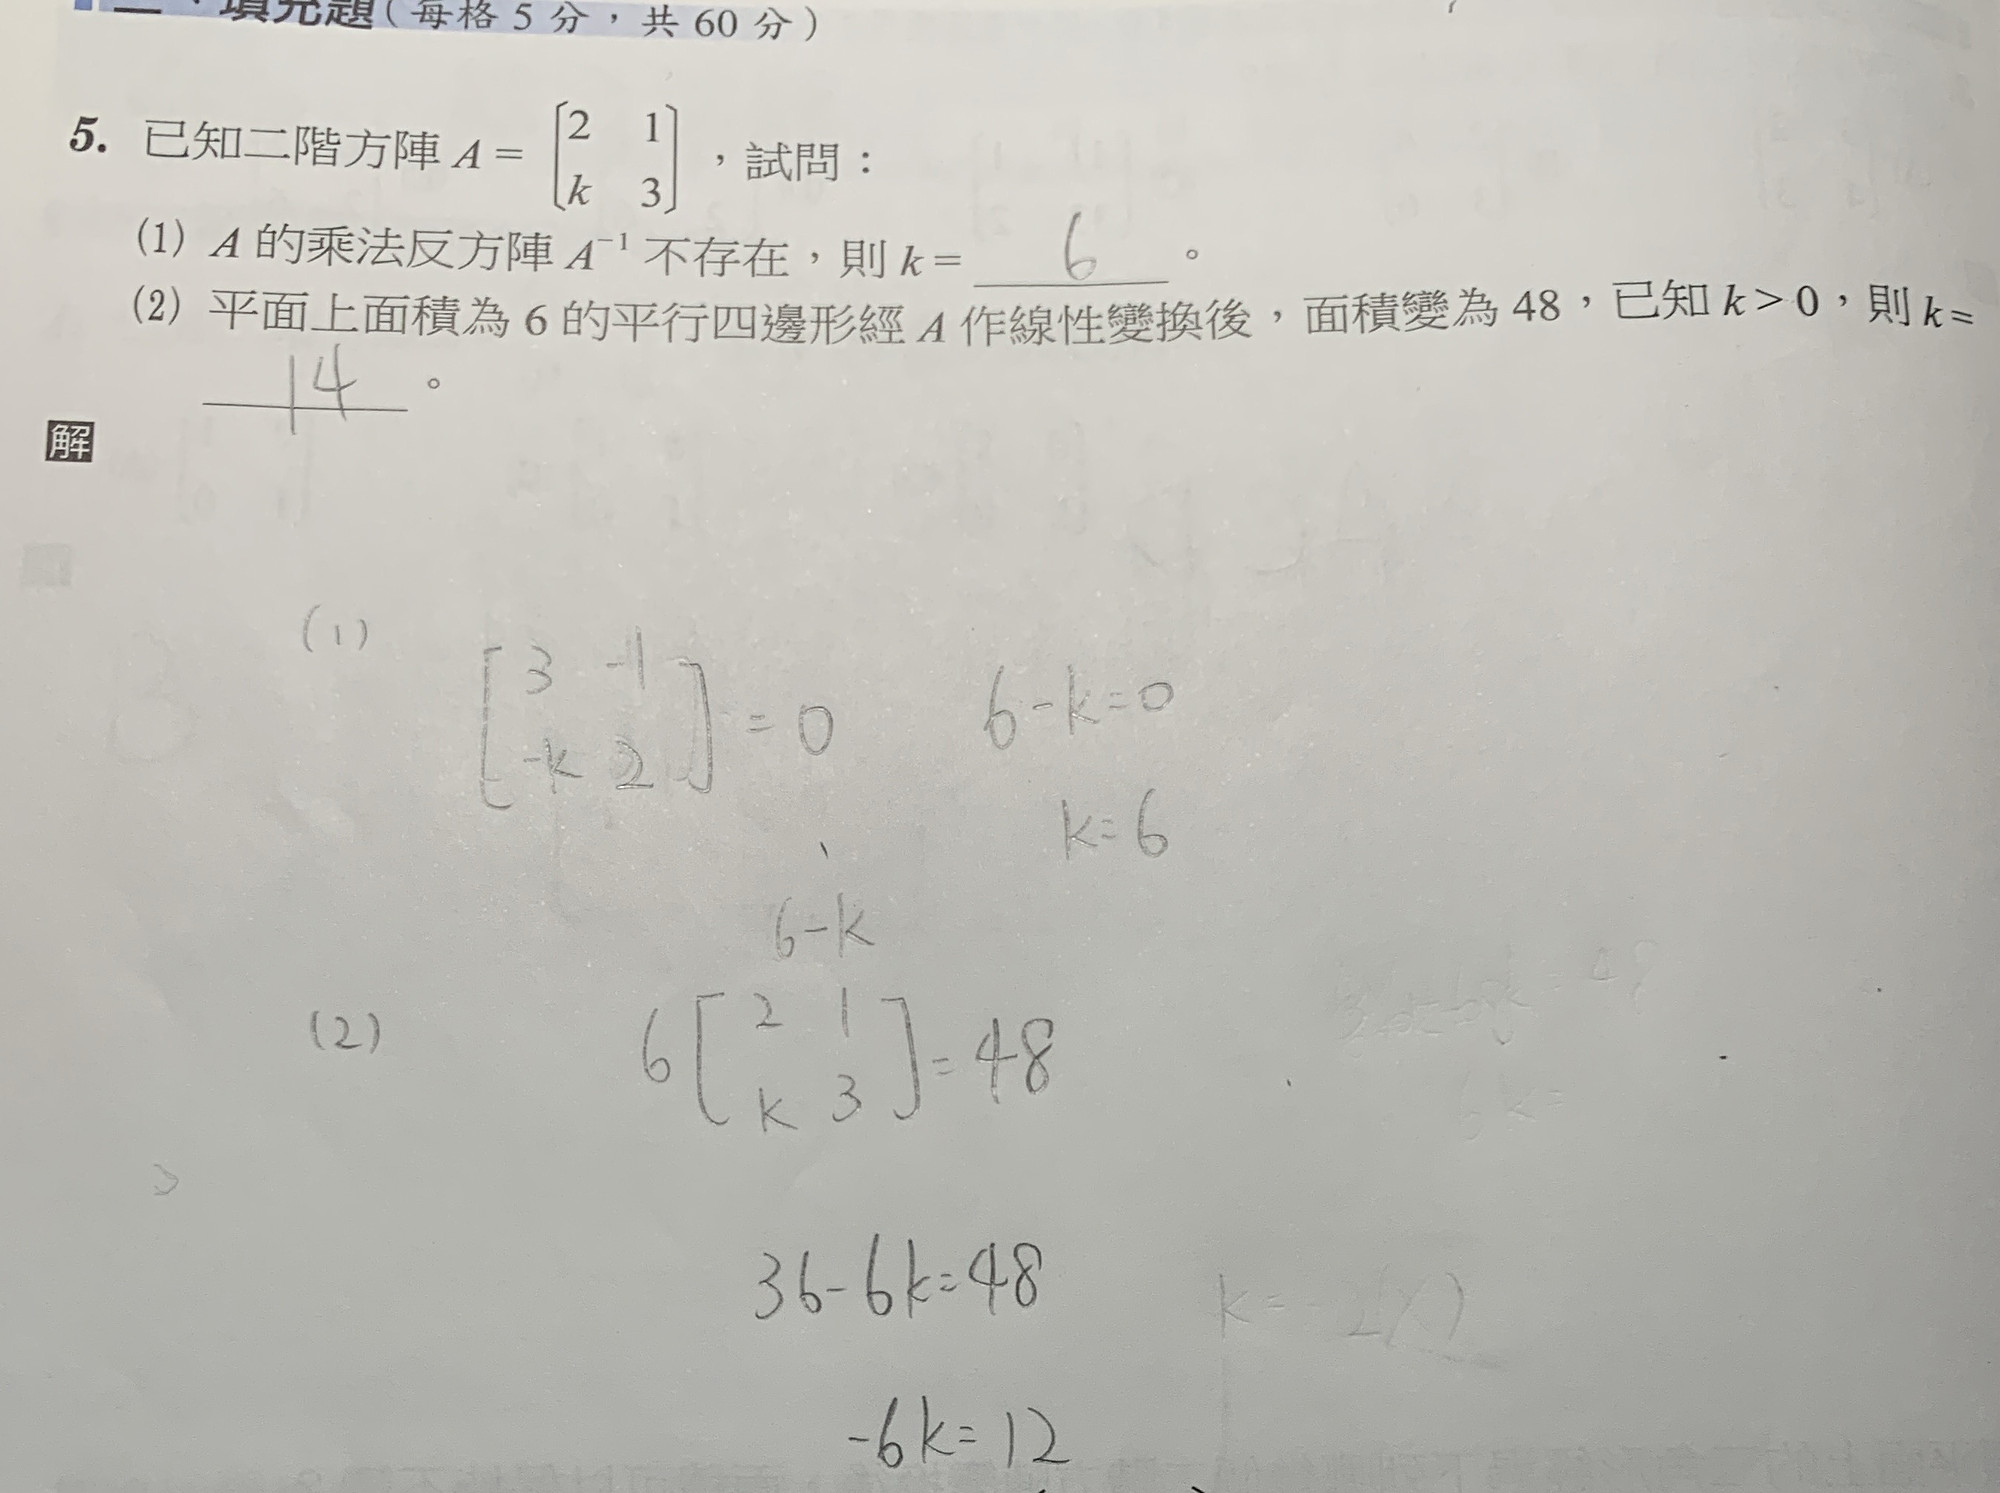 填充題(每格 5 分，共 60 分)
5. 已知二階方陣 A = [2 1
k 3]，試問：
(1) A 的乘法反方陣 A⁻¹ 不存在，則 k = 6 。
(2) 平面上面積為 6 的平行四邊形經 A 作線性變換後，面積變為 48，已知 k > 0，則 k =
14 。
解
(1)
[3 -1
-k 2] = 0
6-k=0
k=6
6-k
(2)
6[2 1
k 3] = 48
36-6k=48
k=-2(×)
-6k=12